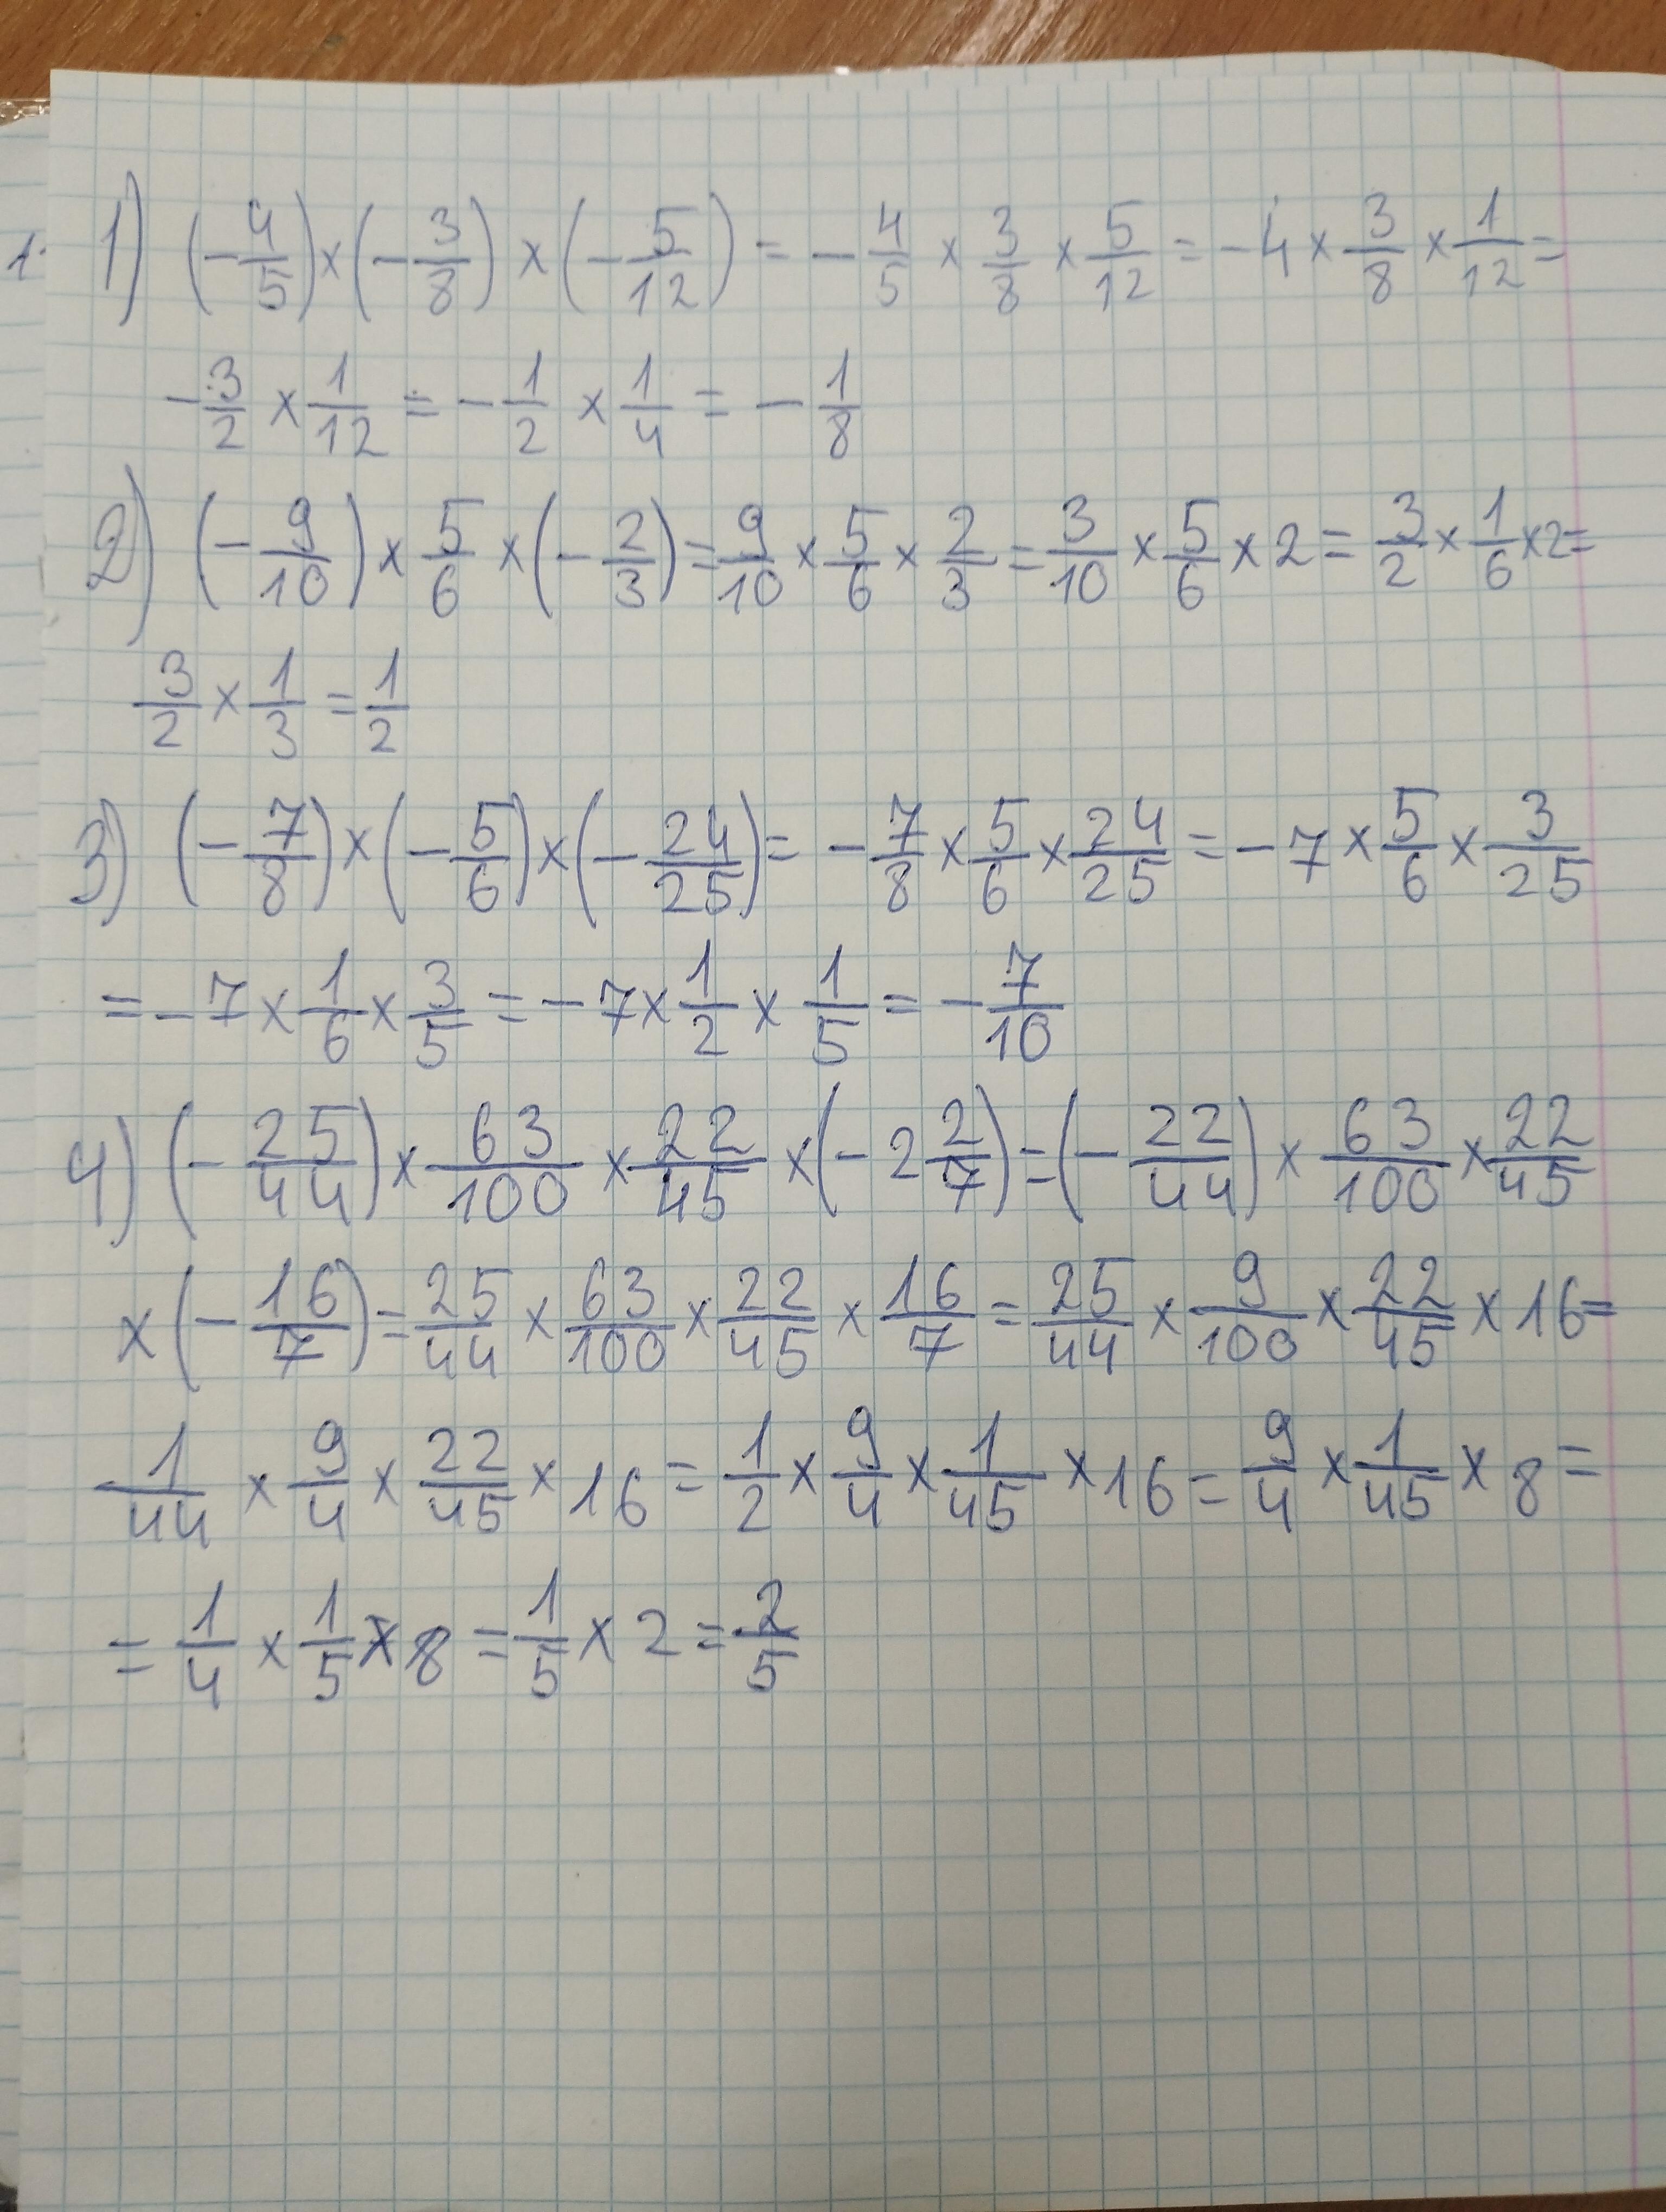 1. 1) (-4/5)×(-3/8)×(-5/12)=-4/5×3/8×5/12=-4×3/8×1/12=
-3/2×1/12=-1/2×1/4=-1/8
2) (-9/10)×5/6×(-2/3)=9/10×5/6×2/3=3/10×5/6×2=3/2×1/6×2=
3/2×1/3=1/2
3) (-7/8)×(-5/6)×(-24/25)=-7/8×5/6×24/25=-7×5/6×3/25
=-7×1/6×3/5=-7×1/2×1/5=-7/10
4) (-25/44)×63/100×22/45×(-2 2/7)=(-22/44)×63/100×22/45
×(-16/7)=25/44×63/100×22/45×16/7=25/44×9/100×22/45×16=
1/44×9/4×22/45×16=1/2×9/4×1/45×16=9/4×1/45×8=
=1/4×1/5×8=1/5×2=2/5